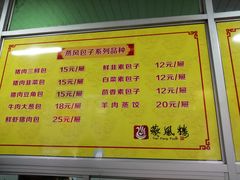 蒸风包子系列品种
猪肉三鲜包 15元/屉
猪肉韭菜包 15元/屉
猪肉豆角包 15元/屉
牛肉大葱包 18元/屉
鲜虾猪肉包 25元/屉
鲜韭素包子 12元/屉
白菜素包子 12元/屉
茴香素包子 12元/屉
羊肉蒸饺 20元/屉